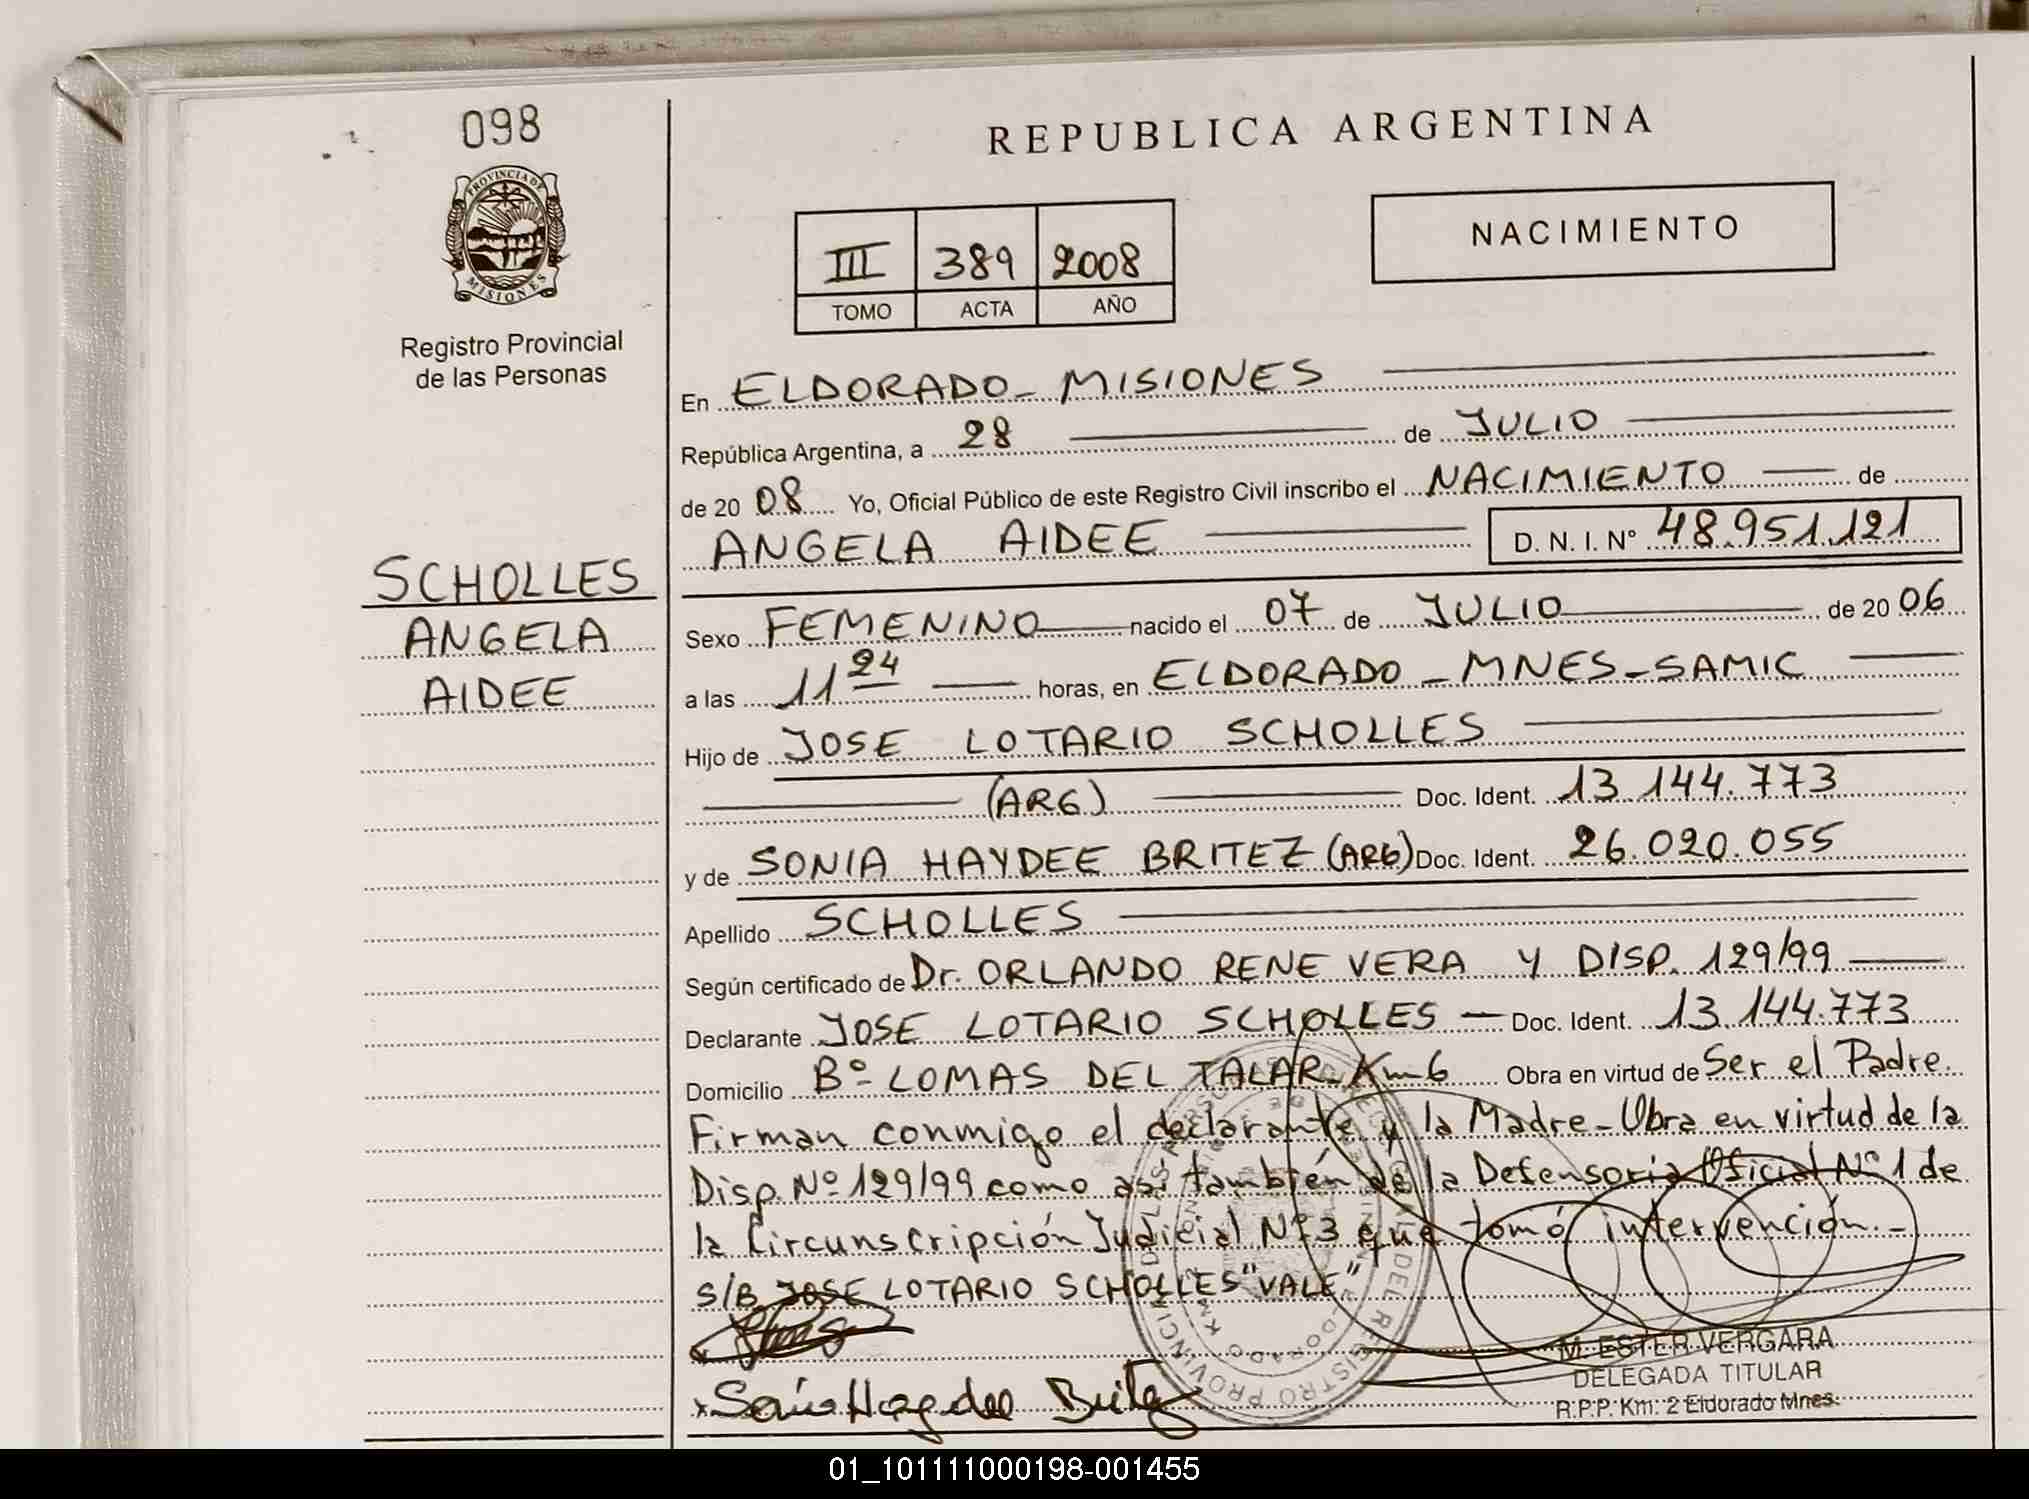 098
PROVINCIA DE
MISIONES
Registro Provincial
de las Personas
SCHOLLES
ANGELA
AIDEE
REPUBLICA ARGENTINA
III 389 2008
TOMO ACTA AÑO
NACIMIENTO
En ELDORADO - MISIONES
República Argentina, a 28 de JULIO
de 2008 Yo, Oficial Público de este Registro Civil inscribo el NACIMIENTO de
ANGELA AIDEE D. N. I. Nº 48.951.121
Sexo FEMENINO nacido el 07 de JULIO de 2006
a las 11 24 horas, en ELDORADO - MNES - SAMIC
Hijo de JOSE LOTARIO SCHOLLES
(ARG) Doc. Ident. 13.144.773
y de SONIA HAYDEE BRITEZ (ARG) Doc. Ident. 26.020.055
Apellido SCHOLLES
Según certificado de Dr. ORLANDO RENE VERA Y DISP. 129/99
Declarante JOSE LOTARIO SCHOLLES - Doc. Ident. 13.144.773
Domicilio Bº LOMAS DEL TALAR - Km 6 Obra en virtud de Ser el Padre.
Firman conmigo el declarante y la Madre - Obra en virtud de la
Disp. Nº 129/99 como así también de la Defensoria Oficial Nº 1 de
la Circunscripción Judicial Nº 3 que tomó intervención. -
S/B JOSE LOTARIO SCHOLLES "VALE"
M. ESTER VERGARA
DELEGADA TITULAR
R.P.P. Km. 2 Eldorado Mnes.
x Sonia Haydee Britez
01_101111000198-001455